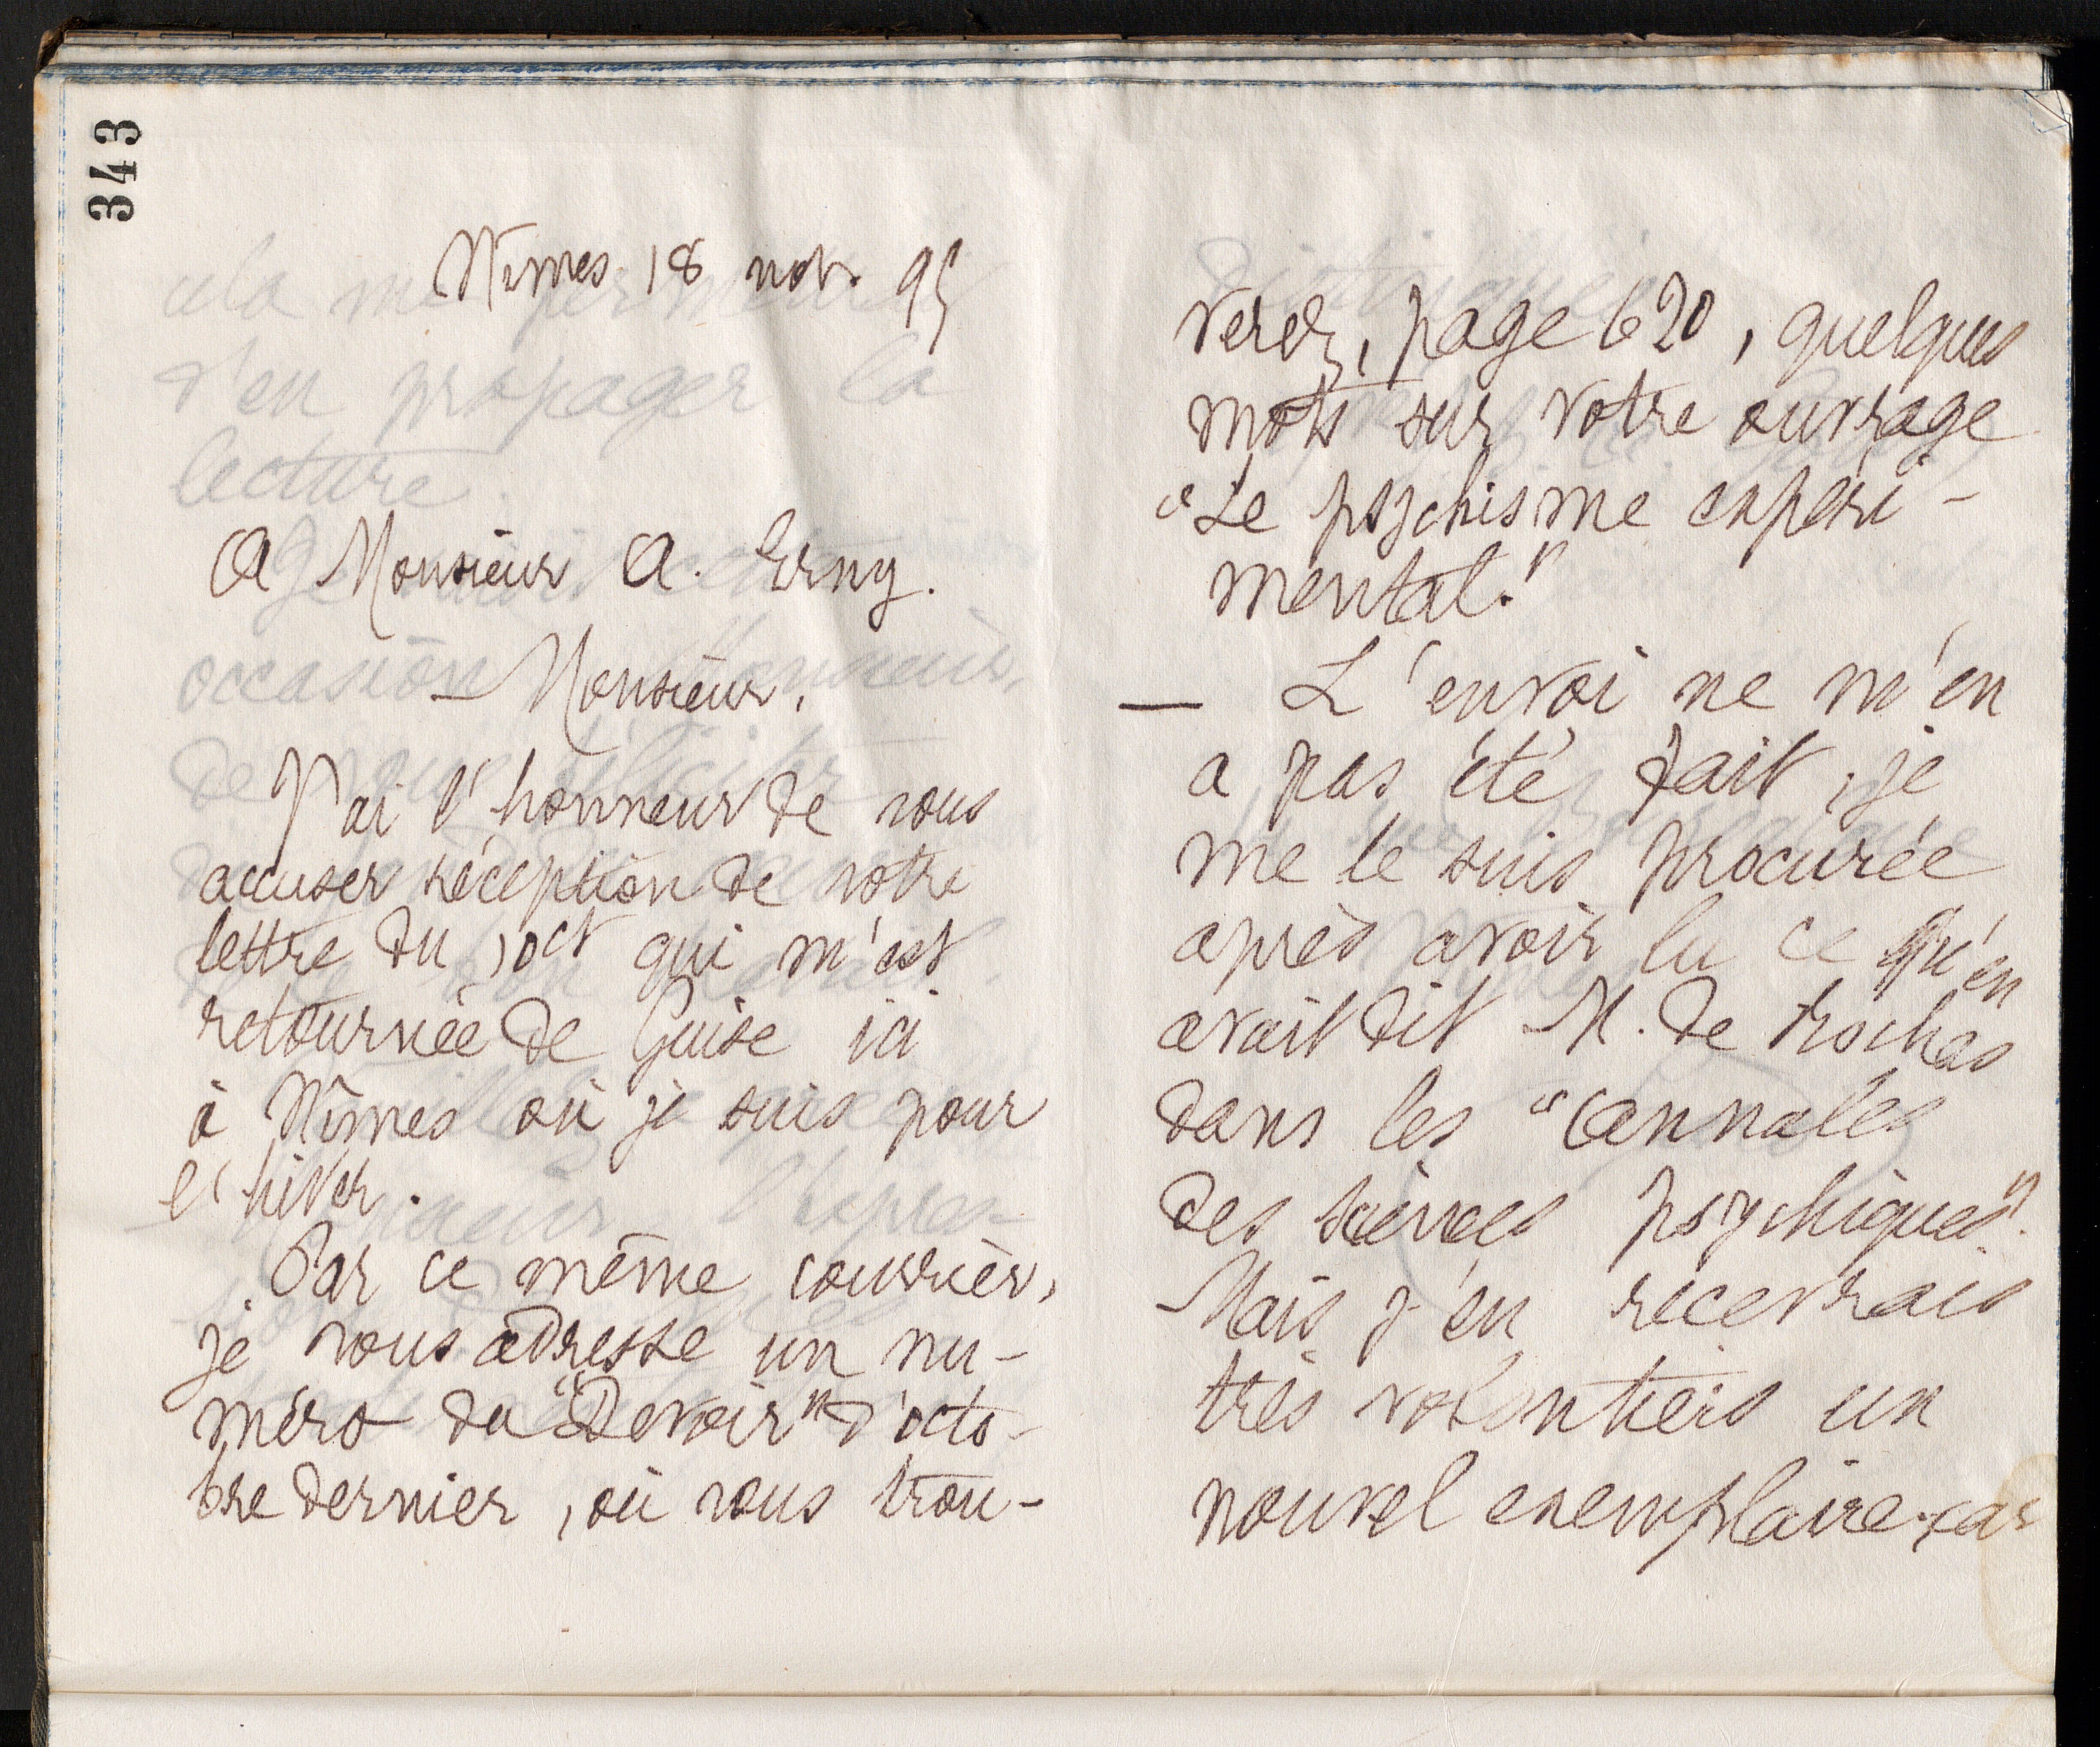 343
Nîmes 18 nov. 95
A Monsieur A. Erny.
Monsieur,
J'ai l'honneur de vous
accuser réception de votre
lettre du oct qui m'est
retournée de Guise ici
à Nîmes où je suis pour
l'hiver.
Par ce même courrier,
je vous adresse un nu-
méro du "Devoir" d'octo-
bre dernier, où vous trou-
verez, page 620, quelques
mots sur votre ouvrage
"Le psychisme expéri-
mental."
— L'envoi ne m'en
a pas été fait, je
me le suis procurée
après avoir lu ce qu'en
avait dit M. de Rochas
dans les "Annales
des sciences psychiques".
Mais j'en recevrais
très volontiers un
nouvel exemplaire car